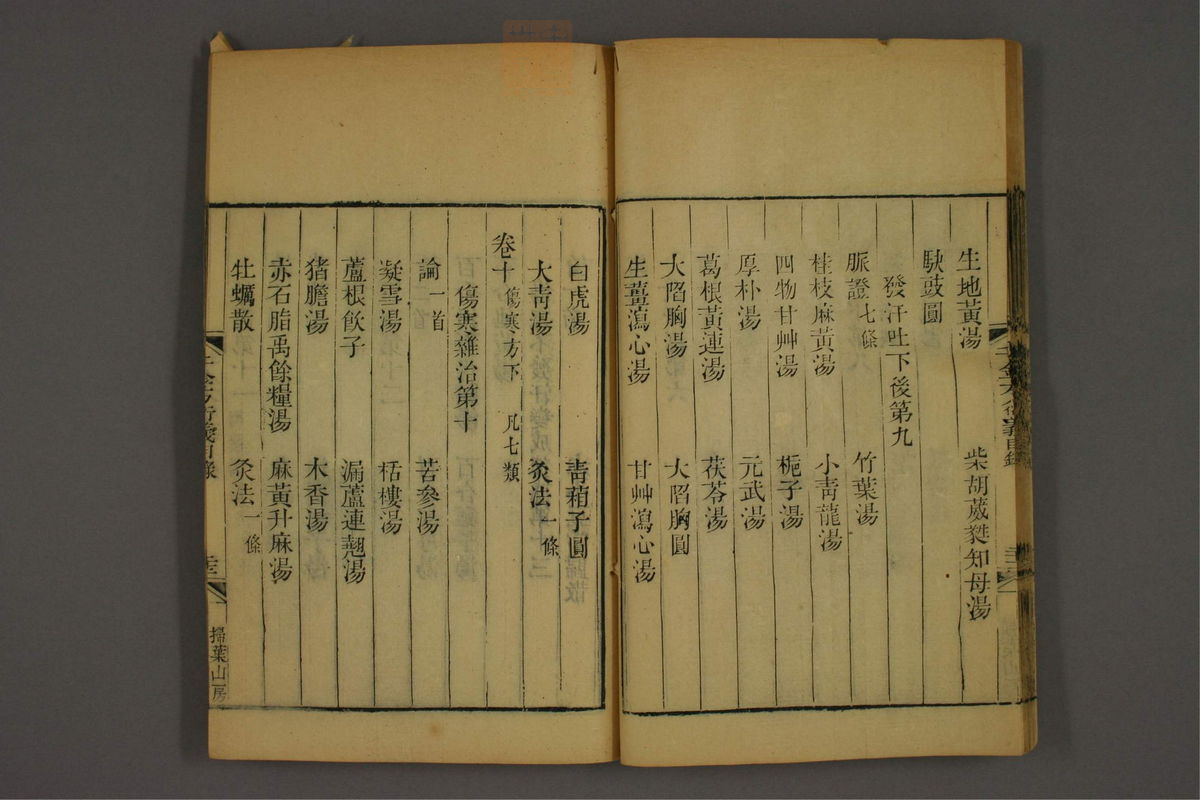 生地黃湯　柴胡葳蕤知母湯
䭿豉圓
發汗吐下後第九
脈證七條　竹葉湯
桂枝麻黃湯　小青龍湯
四物甘艸湯　梔子湯
厚朴湯　元武湯
葛根黃連湯　茯苓湯
大陷胸湯　大陷胸圓
生薑瀉心湯　甘艸瀉心湯
白虎湯　青葙子圓
大青湯　灸法一條
卷十傷寒方下　凡七類
傷寒雜治第十
論一首　苦參湯
凝雪湯　栝樓湯
蘆根飲子　漏蘆連翹湯
猪膽湯　木香湯
赤石脂禹餘糧湯　麻黃升麻湯
牡蠣散　灸法一條
千金方衍義目錄　三
掃葉山房